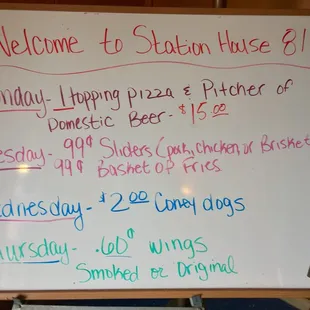 Welcome to Station House 81
nday - 1 topping pizza & Pitcher of
Domestic Beer - $15.00
esday - 99¢ Sliders (pork, chicken, or Brisket
99¢ Basket of Fries
dnesday - $2.00 Coney dogs
hursday - .60¢ wings
Smoked or Original